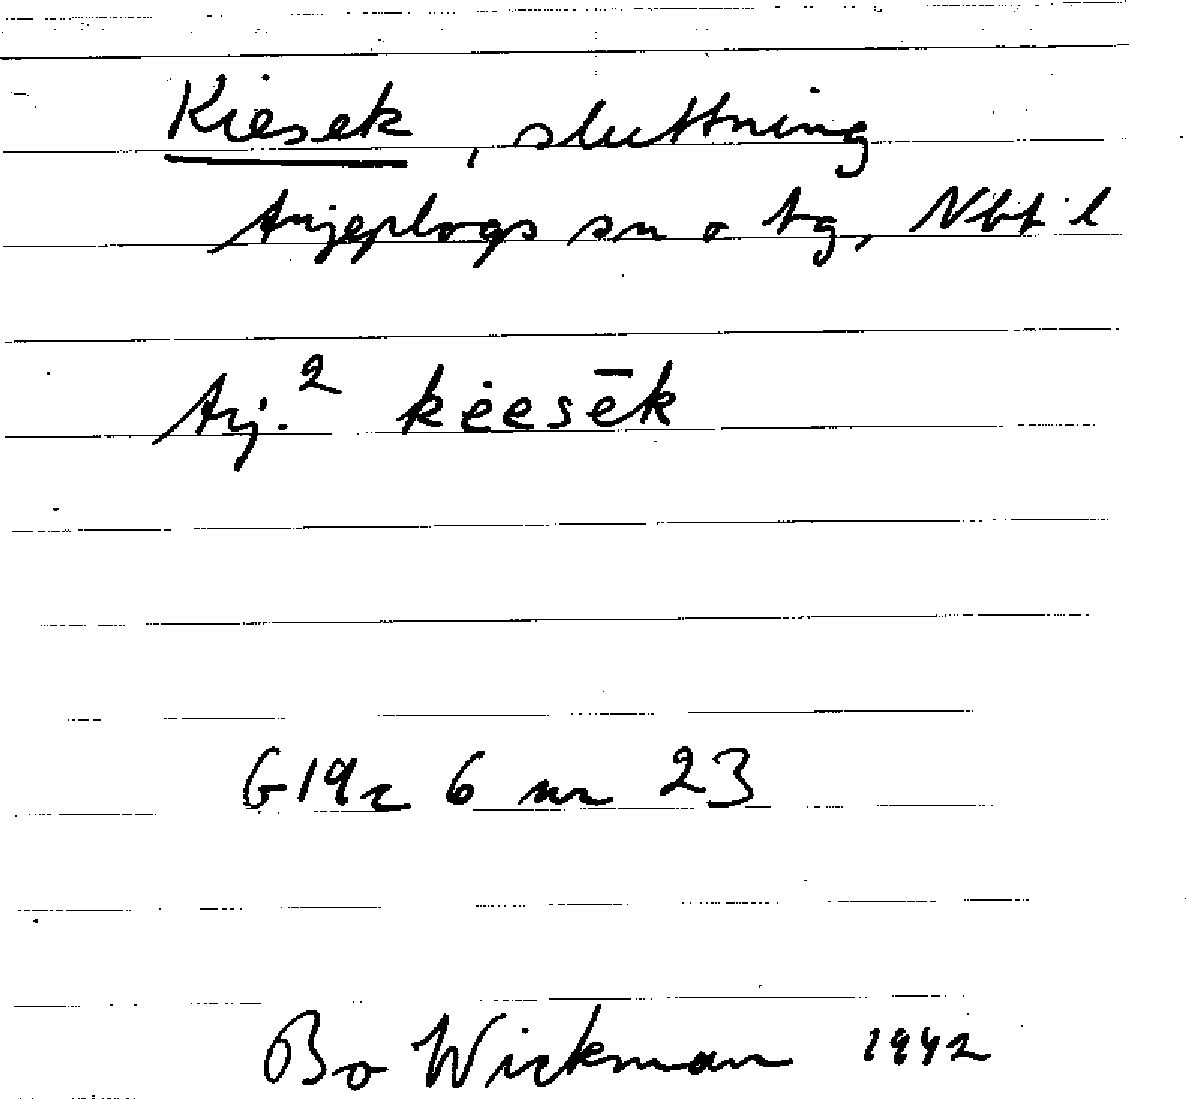 Kiesek, sluttning
Arjeplogs sn o tg, Nbt l
Arj.² kėesēk
G19c 6 nr 23
Bo Wickman 1942